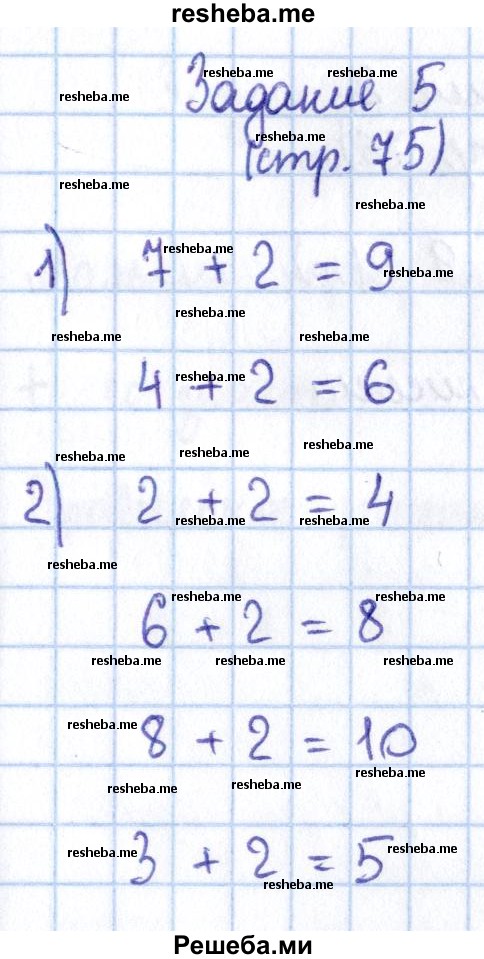 resheba.me
resheba.me resheba.me
resheba.me
Задание 5
resheba.me
(стр. 75)
resheba.me
resheba.me
resheba.me
1) 7 + 2 = 9
resheba.me
resheba.me
resheba.me resheba.me
resheba.me
4 + 2 = 6
resheba.me
resheba.me resheba.me
2) 2 + 2 = 4
resheba.me resheba.me
resheba.me
resheba.me resheba.me
6 + 2 = 8
resheba.me resheba.me resheba.me
resheba.me
8 + 2 = 10
resheba.me
resheba.me resheba.me
resheba.me resheba.me
3 + 2 = 5
resheba.me
Решеба.ми